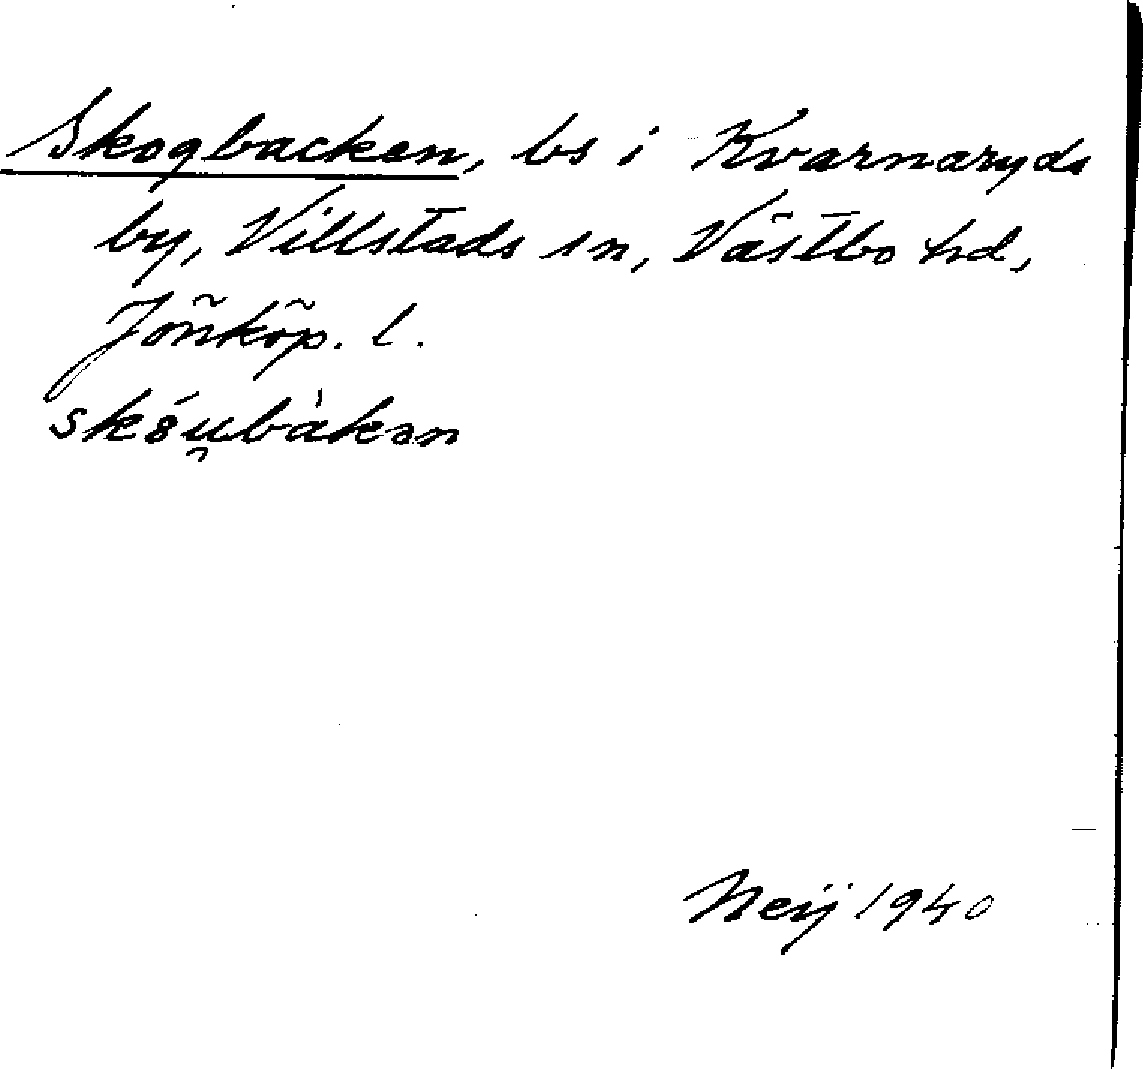 Skogbacken, bs i Kvarnaryds
by, Villstads sn, Västbo hd,
Jönköp. l.
Neij 1940